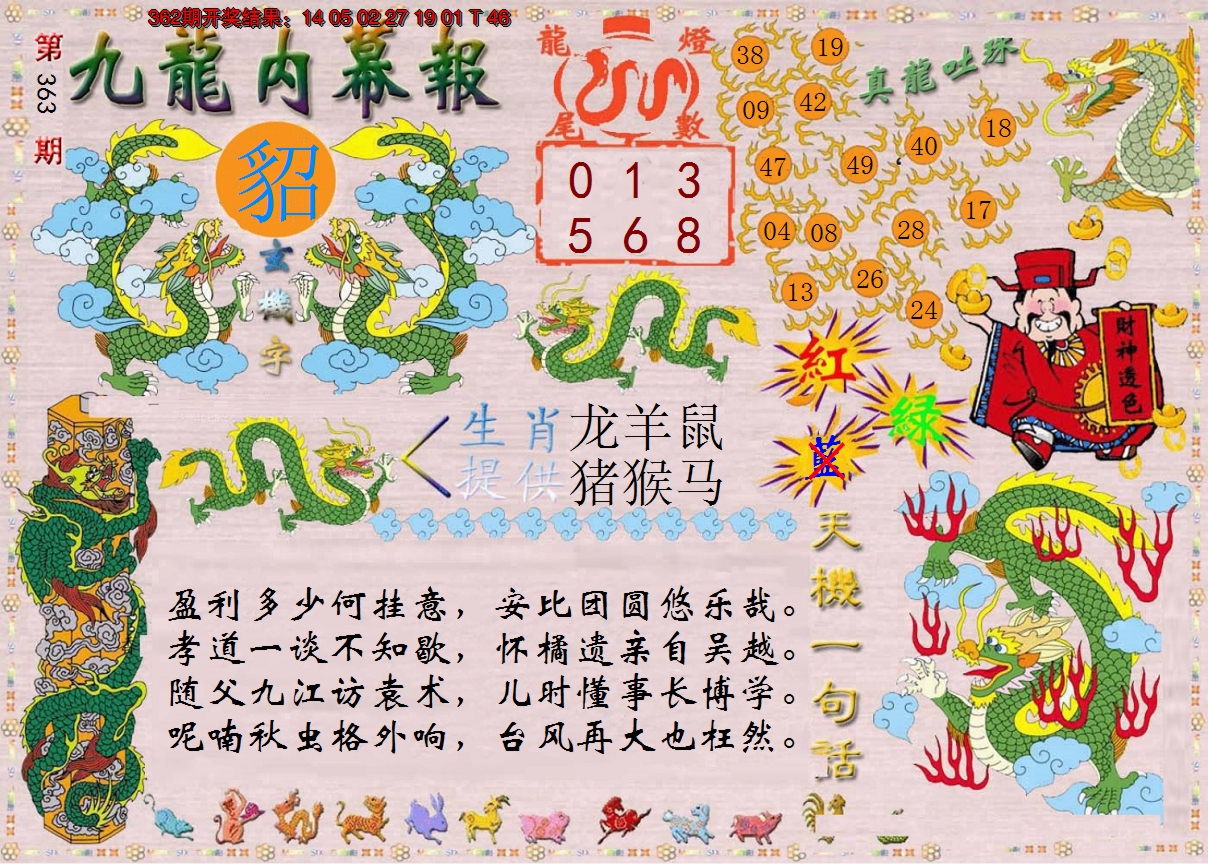 362期开奖结果：14 05 02 27 19 01 T 46
第363期
九龍内幕報
貂
玄機字
龍燈尾數
0 1 3
5 6 8
真龍吐珠
38 19
09 42
47 49 40 18
04 08 28 17
13 26 24
紅
綠
藍
財神透色
生肖提供
龙羊鼠
猪猴马
盈利多少何挂意，安比团圆悠乐哉。
孝道一谈不知歇，怀橘遗亲自吴越。
随父九江访袁术，儿时懂事长博学。
呢喃秋虫格外响，台风再大也枉然。
天機一句話